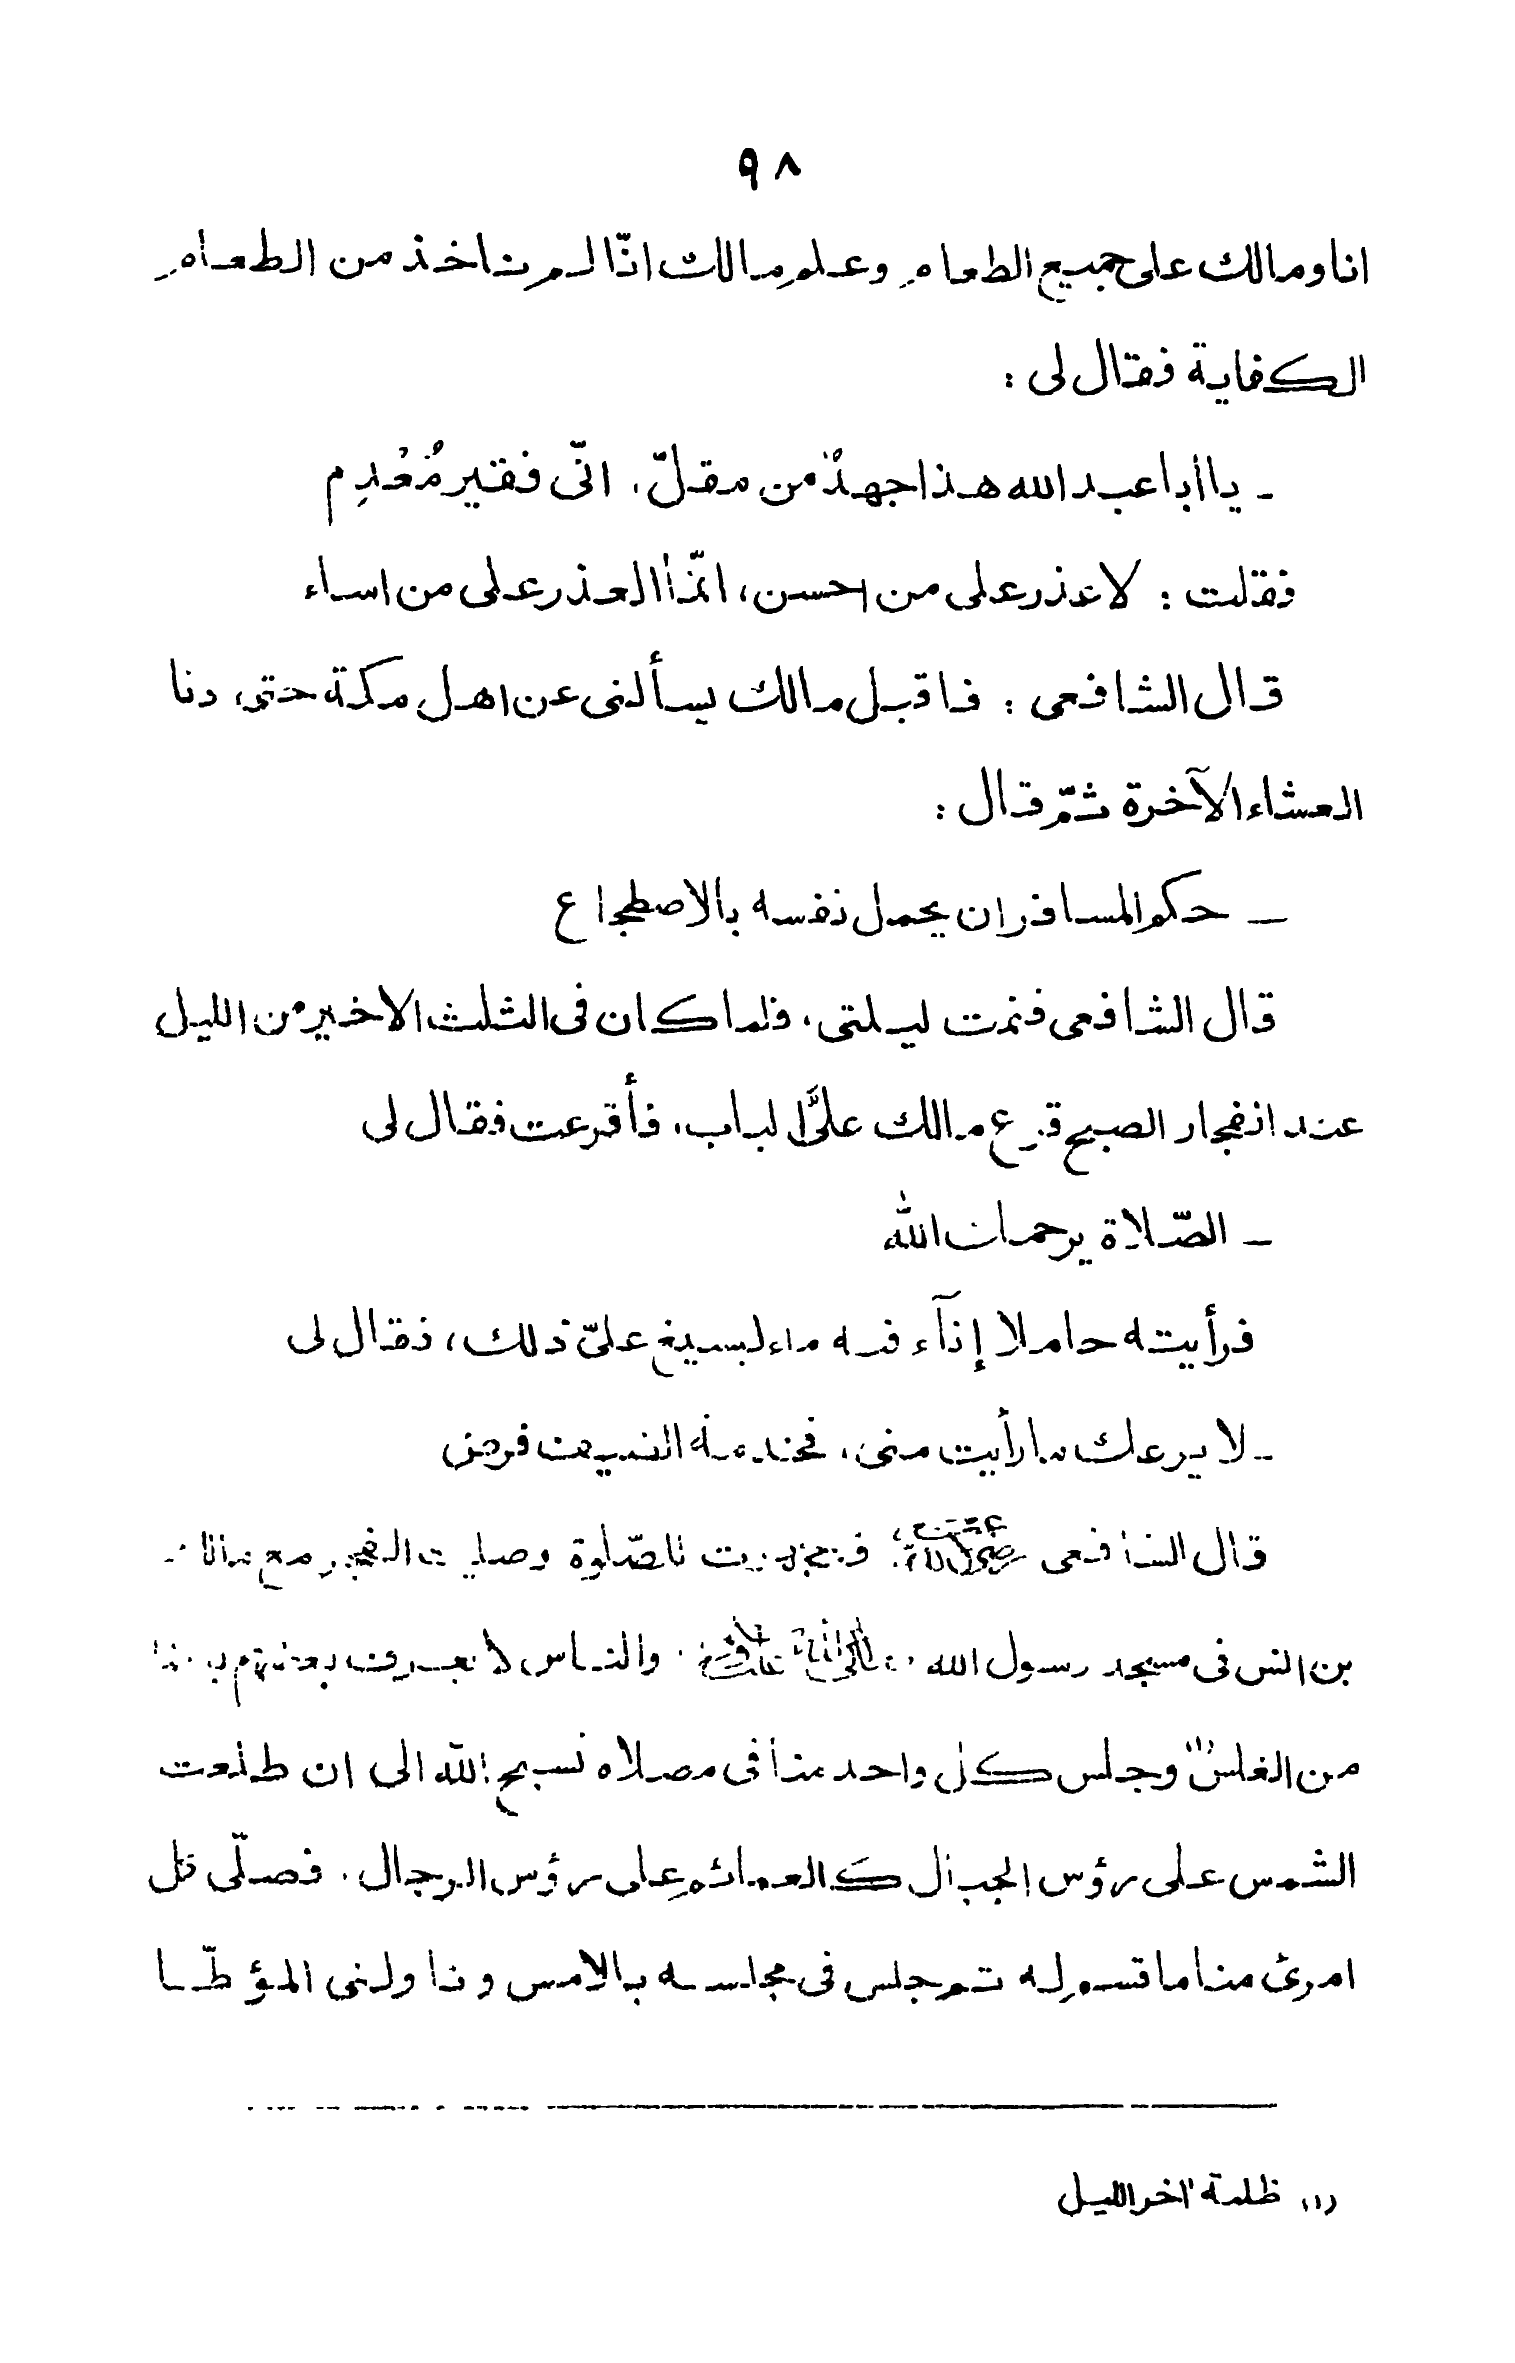 ٩٨
انا ومالك على جميع الطعام وعلم مالك انّا لم ناخذ من الطعام
الكفاية فقال لى :
ـ يا أبا عبد الله هذا جهدٌ من مقلّ ، انّى فقير مُعْدِم
فقلت : لا عذر على من احسن ، انّما العذر على من اساء
قال الشافعى : فاقبل مالك يسألنى عن اهل مكة حتى دنا
العشاء الآخرة ثمّ قال :
ـ حكم المسافر ان يحمل نفسه بالاصطجاع
قال الشافعى فنمت ليلتى ، فلما كان فى الثلث الاخير من الليل
عند انفجار الصبح قرع مالك علىَّ الباب ، فأقرعت فقال لى
ـ الصّلاة يرحمك الله
فرأيته حاملا إنآء فيه ماء لبسيغ علىّ ذلك ، فقال لى
ـ لا يرعك ما رأيت منى ، فخدمة الضيف فرض
قال الشافعى رضى الله عنه ، فتجهزت للصّلوة وصليت الفجر مع مالك
بن انس فى مسجد رسول الله والناس لا يعرف بعضهم بعضا
من الغلس (١) وجلس كل واحد منا فى مصلاه نسبح الله الى ان طلعت
الشمس على رؤس الجبال كالعمائم على رؤس الرجال . فصلّى كل
امرئ منا ما قسم له ثم جلس فى مجلسه بالامس وناولنى المؤطّا
(١) ظلمة اخر الليل